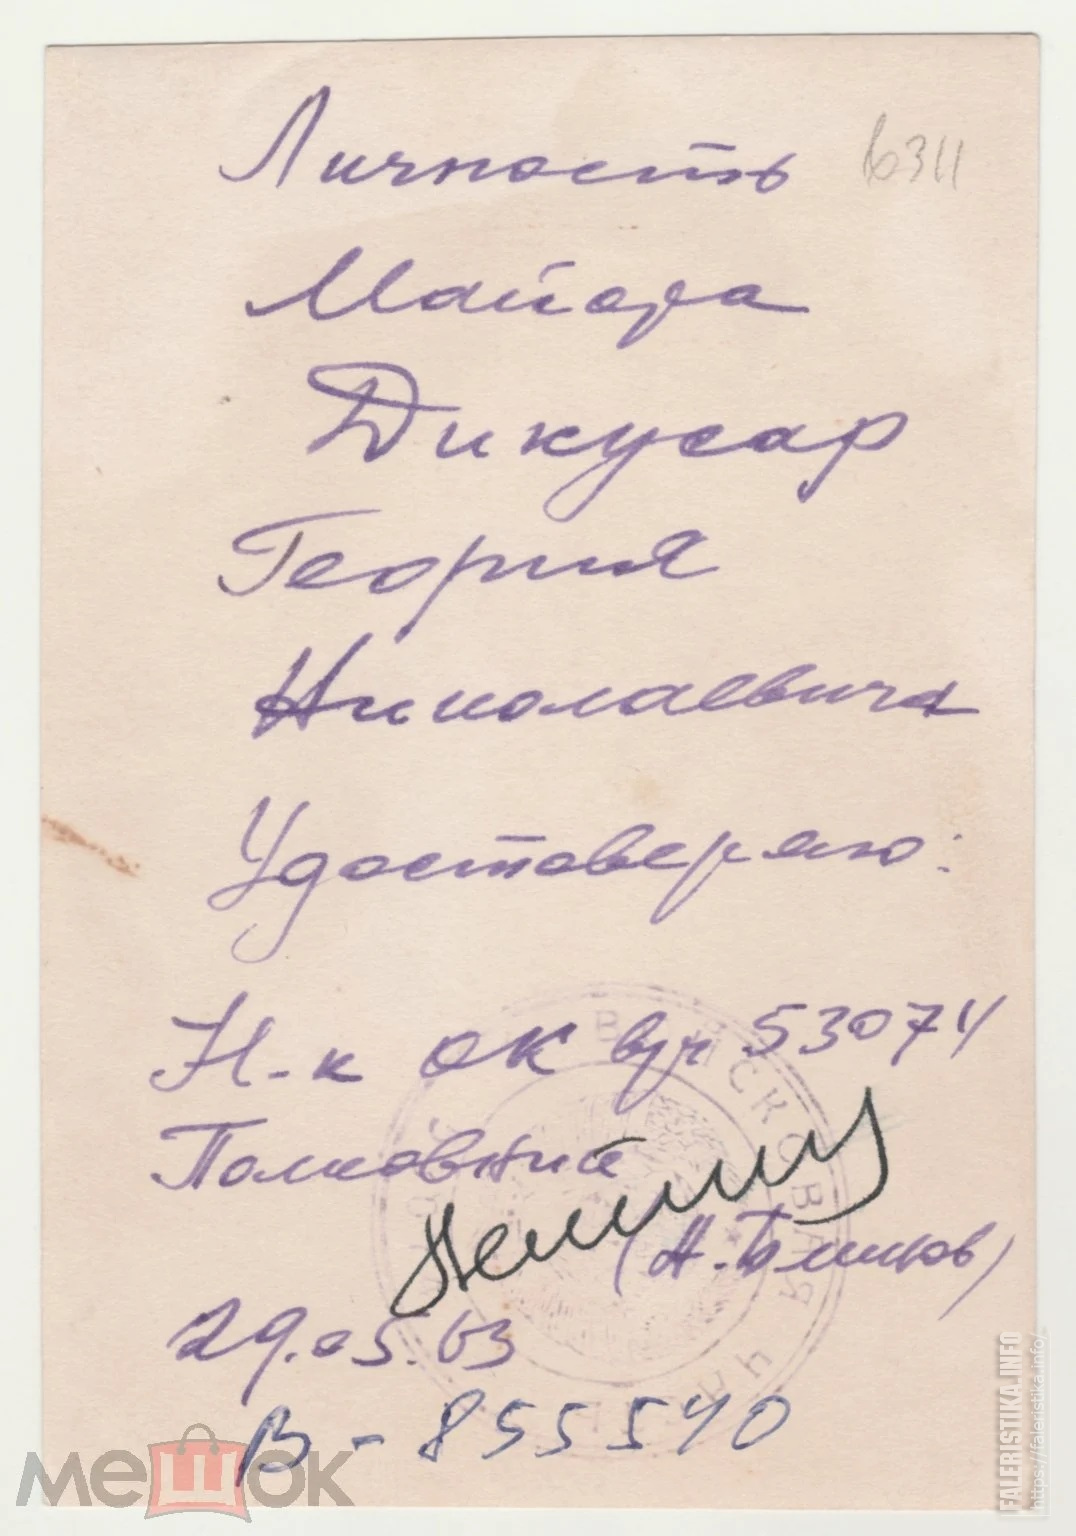 Личность
6311
Майора
Дикусар
Георгия
Николаевича
Удостоверяю:
Н-к ОК в/ч 53074
Полковник
(Н. Блинов)
29.05.63
В-855540
ВОЙСКОВАЯ
МЕШОК
FALERISTIKA.INFO
https://faleristika.info/